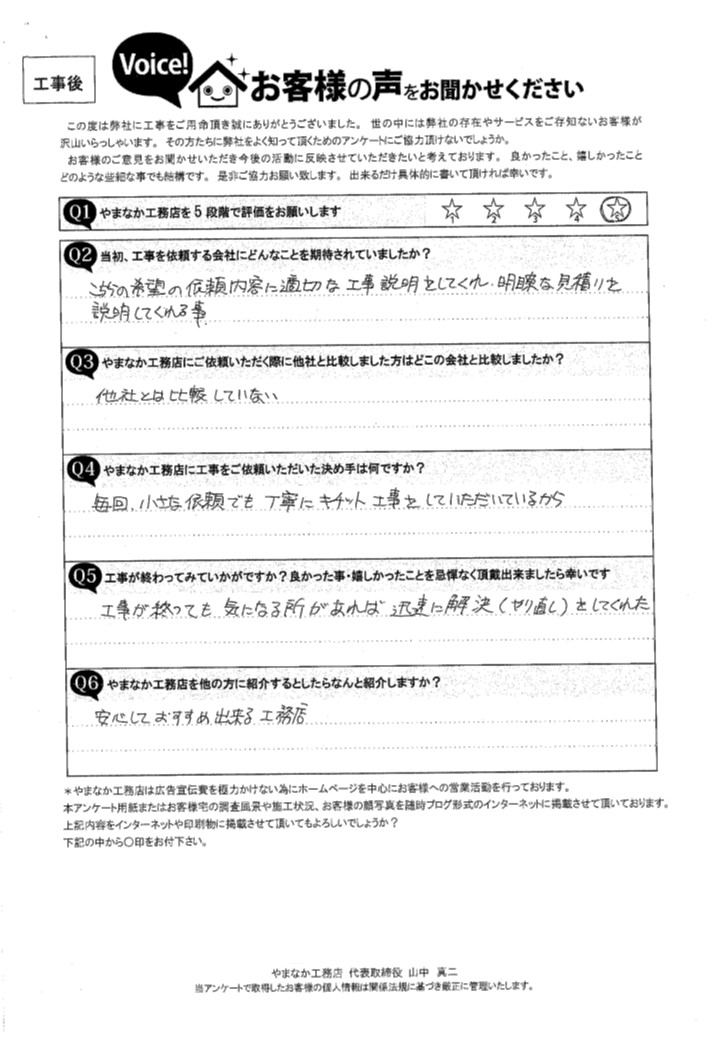 工事後
Voice!
お客様の声をお聞かせください
この度は弊社に工事をご用命頂き誠にありがとうございました。 世の中には弊社の存在やサービスをご存知ないお客様が
沢山いらっしゃいます。 その方たちに弊社をよく知って頂くためのアンケートにご協力頂けないでしょうか。
お客様のご意見をお聞かせいただき今後の活動に反映させていただきたいと考えております。 良かったこと、嬉しかったこと
どのような些細な事でも結構です。 是非ご協力お願い致します。 出来るだけ具体的に書いて頂ければ幸いです。
Q1 やまなか工務店を5段階で評価をお願いします
1 2 3 4 5
Q2 当初、工事を依頼する会社にどんなことを期待されていましたか？
こちらの希望の依頼内容に適切な工事説明をしてくれ、明瞭な見積りを
説明してくれる事
Q3 やまなか工務店にご依頼いただく際に他社と比較しました方はどこの会社と比較しましたか？
他社とは比較していない
Q4 やまなか工務店に工事をご依頼いただいた決め手は何ですか？
毎回、小さな依頼でも丁寧にキチット工事をしていただいているから
Q5 工事が終わってみていかがですか？良かった事・嬉しかったことを忌憚なく頂戴出来ましたら幸いです
工事が終っても気になる所があれば迅速に解決(ヤリ直し)をしてくれた
Q6 やまなか工務店を他の方に紹介するとしたらなんと紹介しますか？
安心しておすすめ出来る工務店
＊やまなか工務店は広告宣伝費を極力かけない為にホームページを中心にお客様への営業活動を行っております。
本アンケート用紙またはお客様宅の調査風景や施工状況、お客様の顔写真を随時ブログ形式のインターネットに掲載させて頂いております。
上記内容をインターネットや印刷物に掲載させて頂いてもよろしいでしょうか？
下記の中から〇印をお付下さい。
やまなか工務店 代表取締役 山中 真二
当アンケートで取得したお客様の個人情報は関係法規に基づき厳正に管理いたします。